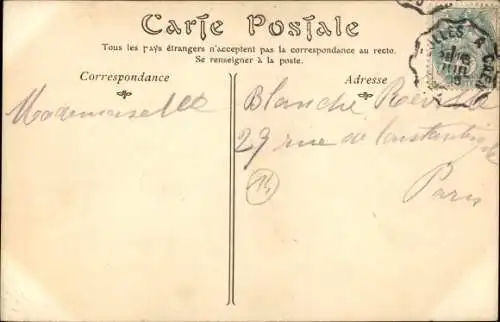 Carte Postale
Tous les pays étrangers n'acceptent pas la correspondance au recto.
Se renseigner à la poste.
Correspondance
Adresse
Mademoiselle
Blanche
29 rue de Constantinople
Paris
14